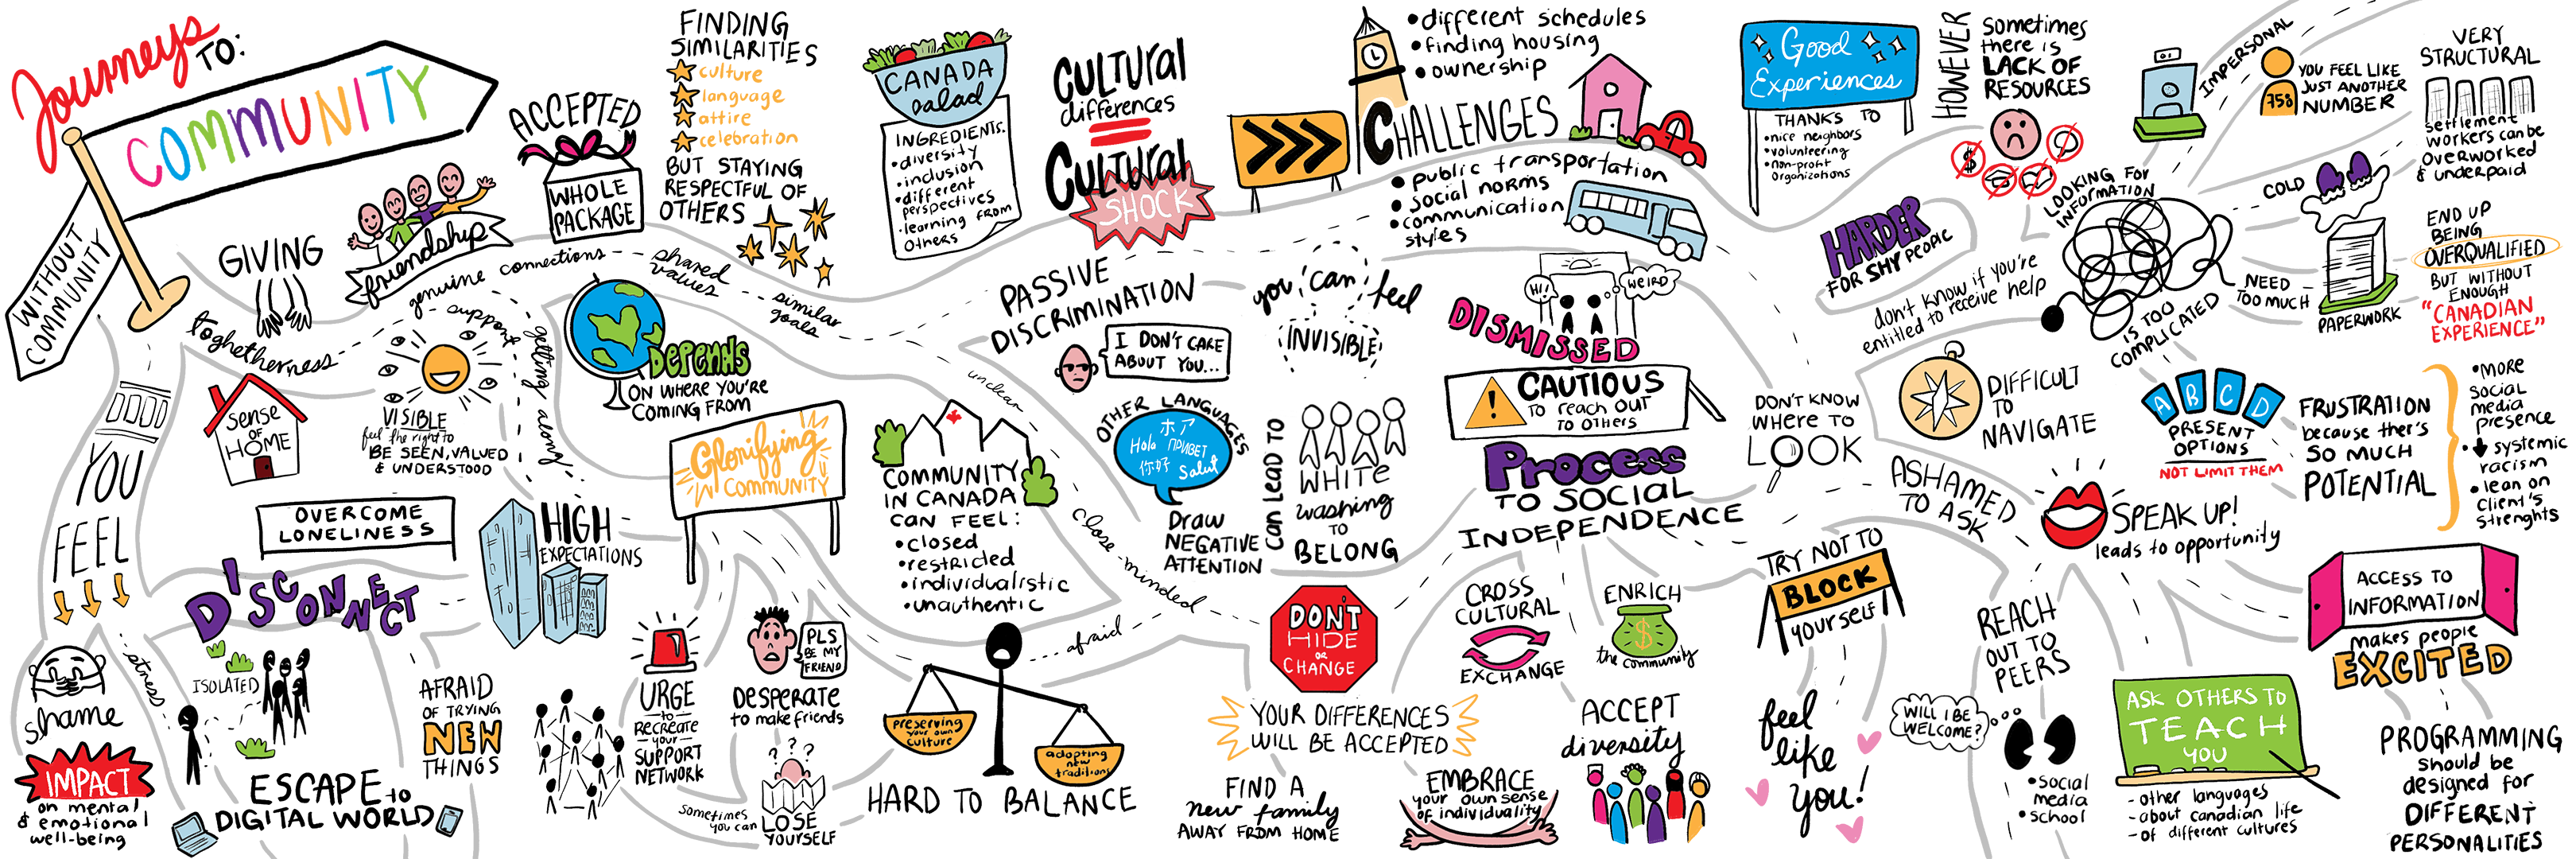 Journeys
TO:
COMMUNITY
WITHOUT
COMMUNITY
GIVING
friendship
ACCEPTED
WHOLE
PACKAGE
FINDING
SIMILARITIES
culture
language
attire
celebration
BUT STAYING
RESPECTFUL OF
OTHERS
toghetherness
genuine connections
shared
values
similar
goals
support
getting along
sense
OF
HOME
VISIBLE
feel the right to
BE SEEN, VALUED
& UNDERSTOOD
OVERCOME
LONELINESS
YOU
FEEL
shame
IMPACT
on mental
& emotional
well-being
stress
DISCONNECT
ISOLATED
ESCAPE TO
DIGITAL WORLD
AFRAID
OF TRYING
NEW
THINGS
HIGH
EXPECTATIONS
DEPENDS
ON WHERE YOU'RE
COMING FROM
Glorifying
COMMUNITY
URGE
to
RECREATE
your
SUPPORT
NETWORK
PLS
BE MY
FRIEND
DESPERATE
to make friends
???
sometimes
you can LOSE
YOURSELF
CANADA
salad
INGREDIENTS:
•diversity
•inclusion
•different
perspectives
•learning from
others
CULTURAL
differences
=
CULTURAL
SHOCK
COMMUNITY
IN CANADA
CAN FEEL:
•closed
•restricted
•individualistic
•unauthentic
unclear
close-minded
afraid
preserving
your own
culture
adopting
new
traditions
HARD TO BALANCE
•different schedules
•finding housing
•ownership
CHALLENGES
•public transportation
•social norms
•communication
styles
PASSIVE
DISCRIMINATION
I DON'T CARE
ABOUT YOU...
OTHER LANGUAGES
ホア
Hola ПРИВЕТ
你好 Salut
Draw
NEGATIVE
ATTENTION
you can feel
INVISIBLE
can LEAD TO
WHITE
washing
TO
BELONG
HI!
WEIRD
DISMISSED
!
CAUTIOUS
to reach out
to others
Process
TO SOCIAL
INDEPENDENCE
DON'T
HIDE
or
CHANGE
YOUR DIFFERENCES
WILL BE ACCEPTED
FIND A
new family
AWAY FROM HOME
CROSS
CULTURAL
EXCHANGE
EMBRACE
your own sense
of individuality
ENRICH
$
the community
ACCEPT
diversity
Good
Experiences
THANKS TO
•nice neighbors
•volunteering
•non-profit
organizations
HOWEVER
sometimes
there is
LACK OF
RESOURCES
$
HARDER
FOR SHY PEOPLE
don't know if you're
entitled to receive help
LOOKING FOR
INFORMATION
IS TOO
COMPLICATED
IMPERSONAL
758
YOU FEEL LIKE
JUST ANOTHER
NUMBER
VERY
STRUCTURAL
settlement
workers can be
overworked
& underpaid
COLD
NEED
TOO MUCH
PAPERWORK
END UP
BEING
OVERQUALIFIED
BUT WITHOUT
ENOUGH
"CANADIAN
EXPERIENCE"
DON'T KNOW
WHERE TO
LOOK
DIFFICULT
TO
NAVIGATE
ASHAMED
TO ASK
A B C D
PRESENT
OPTIONS
NOT LIMIT THEM
FRUSTRATION
because ther's
SO MUCH
POTENTIAL
•more
social
media
presence
•systemic
racism
•lean on
client's
strenghts
SPEAK UP!
leads to opportunity
TRY NOT TO
BLOCK
yourself
feel
like
you!
REACH
OUT TO
PEERS
WILL I BE
WELCOME?
•social
media
•school
ASK OTHERS TO
TEACH
YOU
-other languages
-about canadian life
-of different cultures
ACCESS TO
INFORMATION
makes people
EXCITED
PROGRAMMING
should be
designed for
DIFFERENT
PERSONALITIES